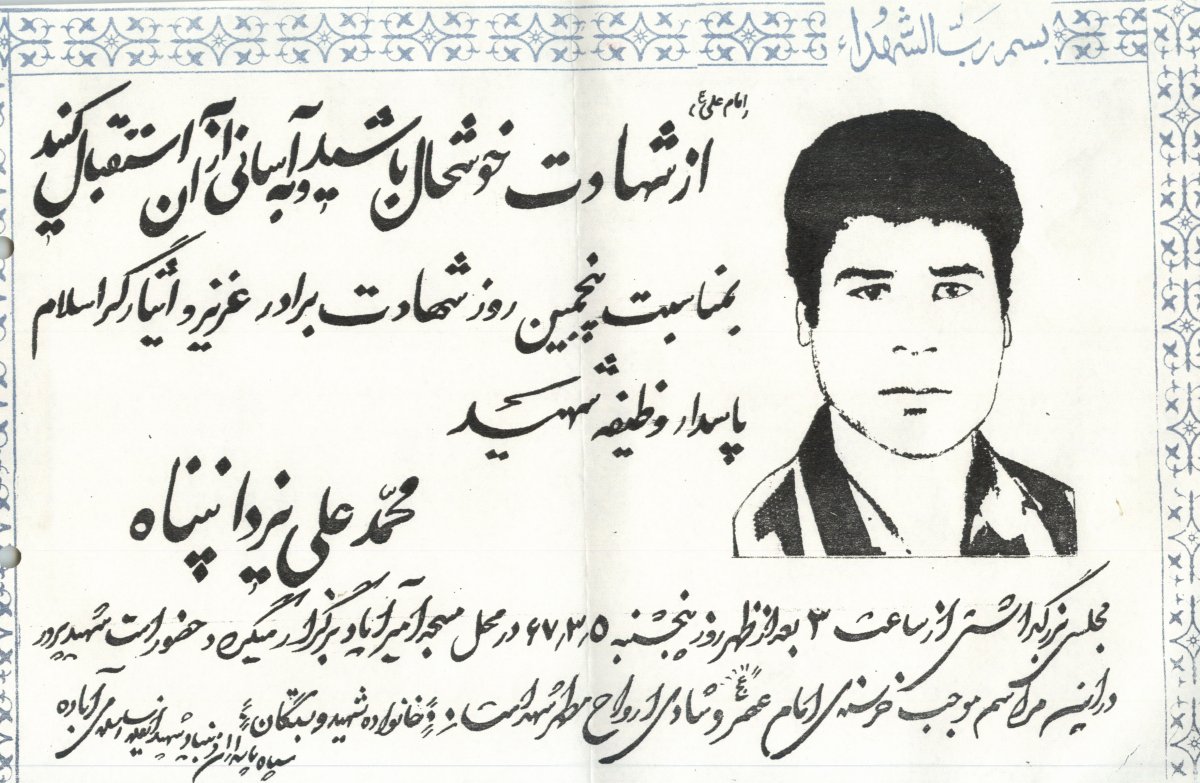 بسم رب الشهداء
امام علی (ع)
از شهادت خوشحال باشید و به آسانی از آن استقبال کنید
بمناسبت پنجمین روز شهادت برادر عزیز و ایثارگر اسلام
پاسدار وظیفه شهید
محمّد علی یزدانپناه
مجلس بزرگداشتی از ساعت ۳ بعد از ظهر روز پنجشنبه ۶۷/۳/۵ در محل مسجد امیرآباد برگزار میگردد حضور امت شهیدپرور
در این مراسم موجب خرسندی امام عصر "عج" و شادی ارواح مطهر شهداست
خانواده شهید و بستگان
سپاه پاسداران و بنیاد شهید انقلاب اسلامی آباده